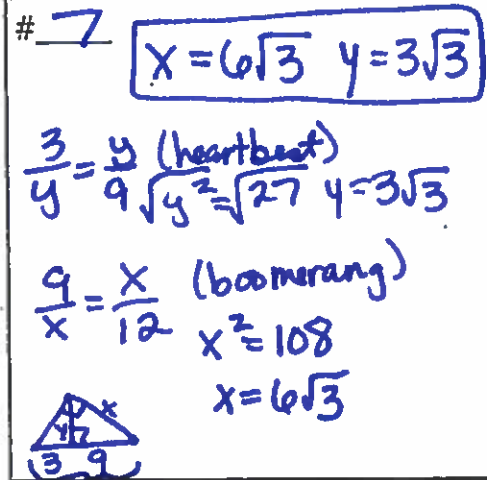 # 7
x = 6√3 y = 3√3
3/y = y/9 (heartbeat)
√y² = √27 y = 3√3
9/x = x/12 (boomerang)
x² = 108
x = 6√3
x
y
3 9